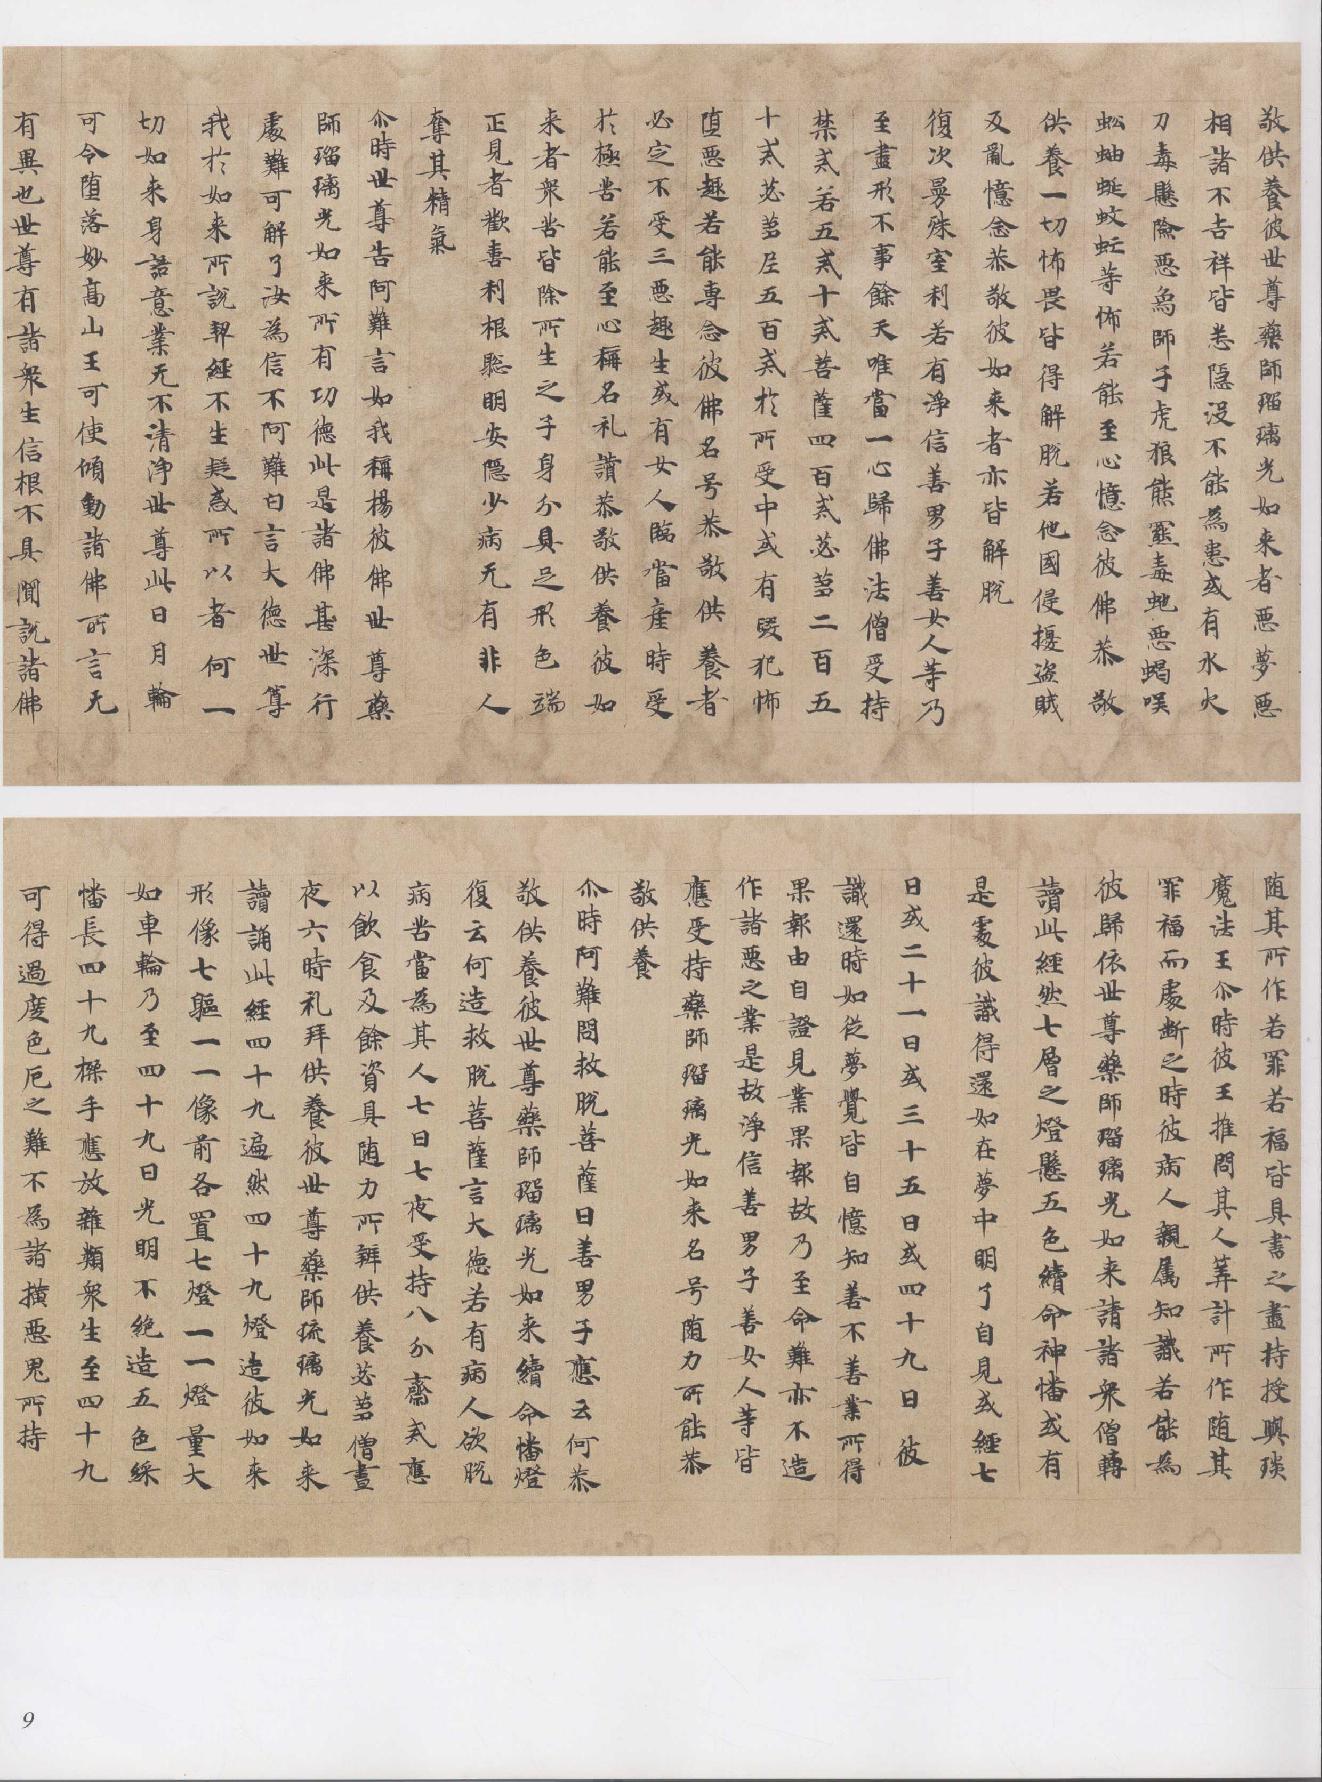 敬供養彼世尊藥師瑠璃光如来者惡夢惡
相諸不吉祥皆悉隱没不能為患或有水火
刀毒懸險惡為師子虎狼熊羆毒虵惡蝎
蚣蚰蜒蚊虻等怖若能至心憶念彼佛恭敬
供養一切怖畏皆得解脱若他國侵擾盗賊
反亂憶念恭敬彼如来者亦皆解脱
復次曼殊室利若有淨信善男子善女人等乃
至盡形不事餘天唯當一心歸佛法僧受持
禁或若五或十或菩薩四百或苾蒭二百五
十或苾蒭尼五百或於所受中或有毁犯怖
堕惡趣若能専念彼佛名号恭敬供養者
必定不受三惡趣生或有女人臨當産時受
於極苦若能至心稱名礼讃恭敬供養彼如
来者衆苦皆除所生之子身分具足形色端
正見者歡喜利根聡明安隱少病无有非人
奪其精氣
尒時世尊告阿難言如我稱楊彼佛世尊藥
師瑠璃光如来所有功德此是諸佛甚深行
處難可解了汝為信不阿難白言大德世尊
我於如来所說契經不生疑惑所以者何一
切如来身語意業无不清淨世尊此日月輪
可令堕落妙髙山王可使傾動諸佛所言无
有異也世尊有諸衆生信根不具聞說諸佛
随其所作若罪若福皆具書之盡持授與琰
魔法王尒時彼王推問其人筭計所作随其
罪福而處断之時彼病人親属知識若能為
彼歸依世尊藥師瑠璃光如来請諸衆僧轉
讀此經然七層之燈懸五色續命神幡或有
是處彼識得還如在夢中明了自見或經七
日或二十一日或三十五日或四十九日彼
識還時如従夢覺皆自憶知善不善業所得
果報由自證見業果報故乃至命難亦不造
作諸惡之業是故淨信善男子善女人等皆
應受持藥師瑠璃光如来名号随力所能恭
敬供養
尒時阿難問救脱菩薩曰善男子應云何恭
敬供養彼世尊藥師瑠璃光如来續命幡燈
復云何造救脱菩薩言大德若有病人欲脱
病苦當為其人七日七夜受持八分齋或應
以飲食及餘資具随力所辦供養苾蒭僧晝
夜六時礼拜供養彼世尊藥師琉璃光如来
讀誦此經四十九遍然四十九燈造彼如来
形像七軀一一像前各置七燈一一燈量大
如車輪乃至四十九日光明不絶造五色綵
幡長四十九搩手應放雜類衆生至四十九
可得過度危厄之難不為諸横惡鬼所持
9